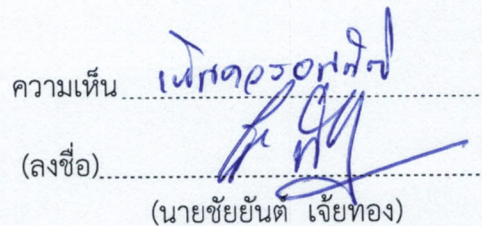 ความเห็น เห็นควรอนุมัติ
(ลงชื่อ)
(นายชัยยันต์ เจ้ยทอง)